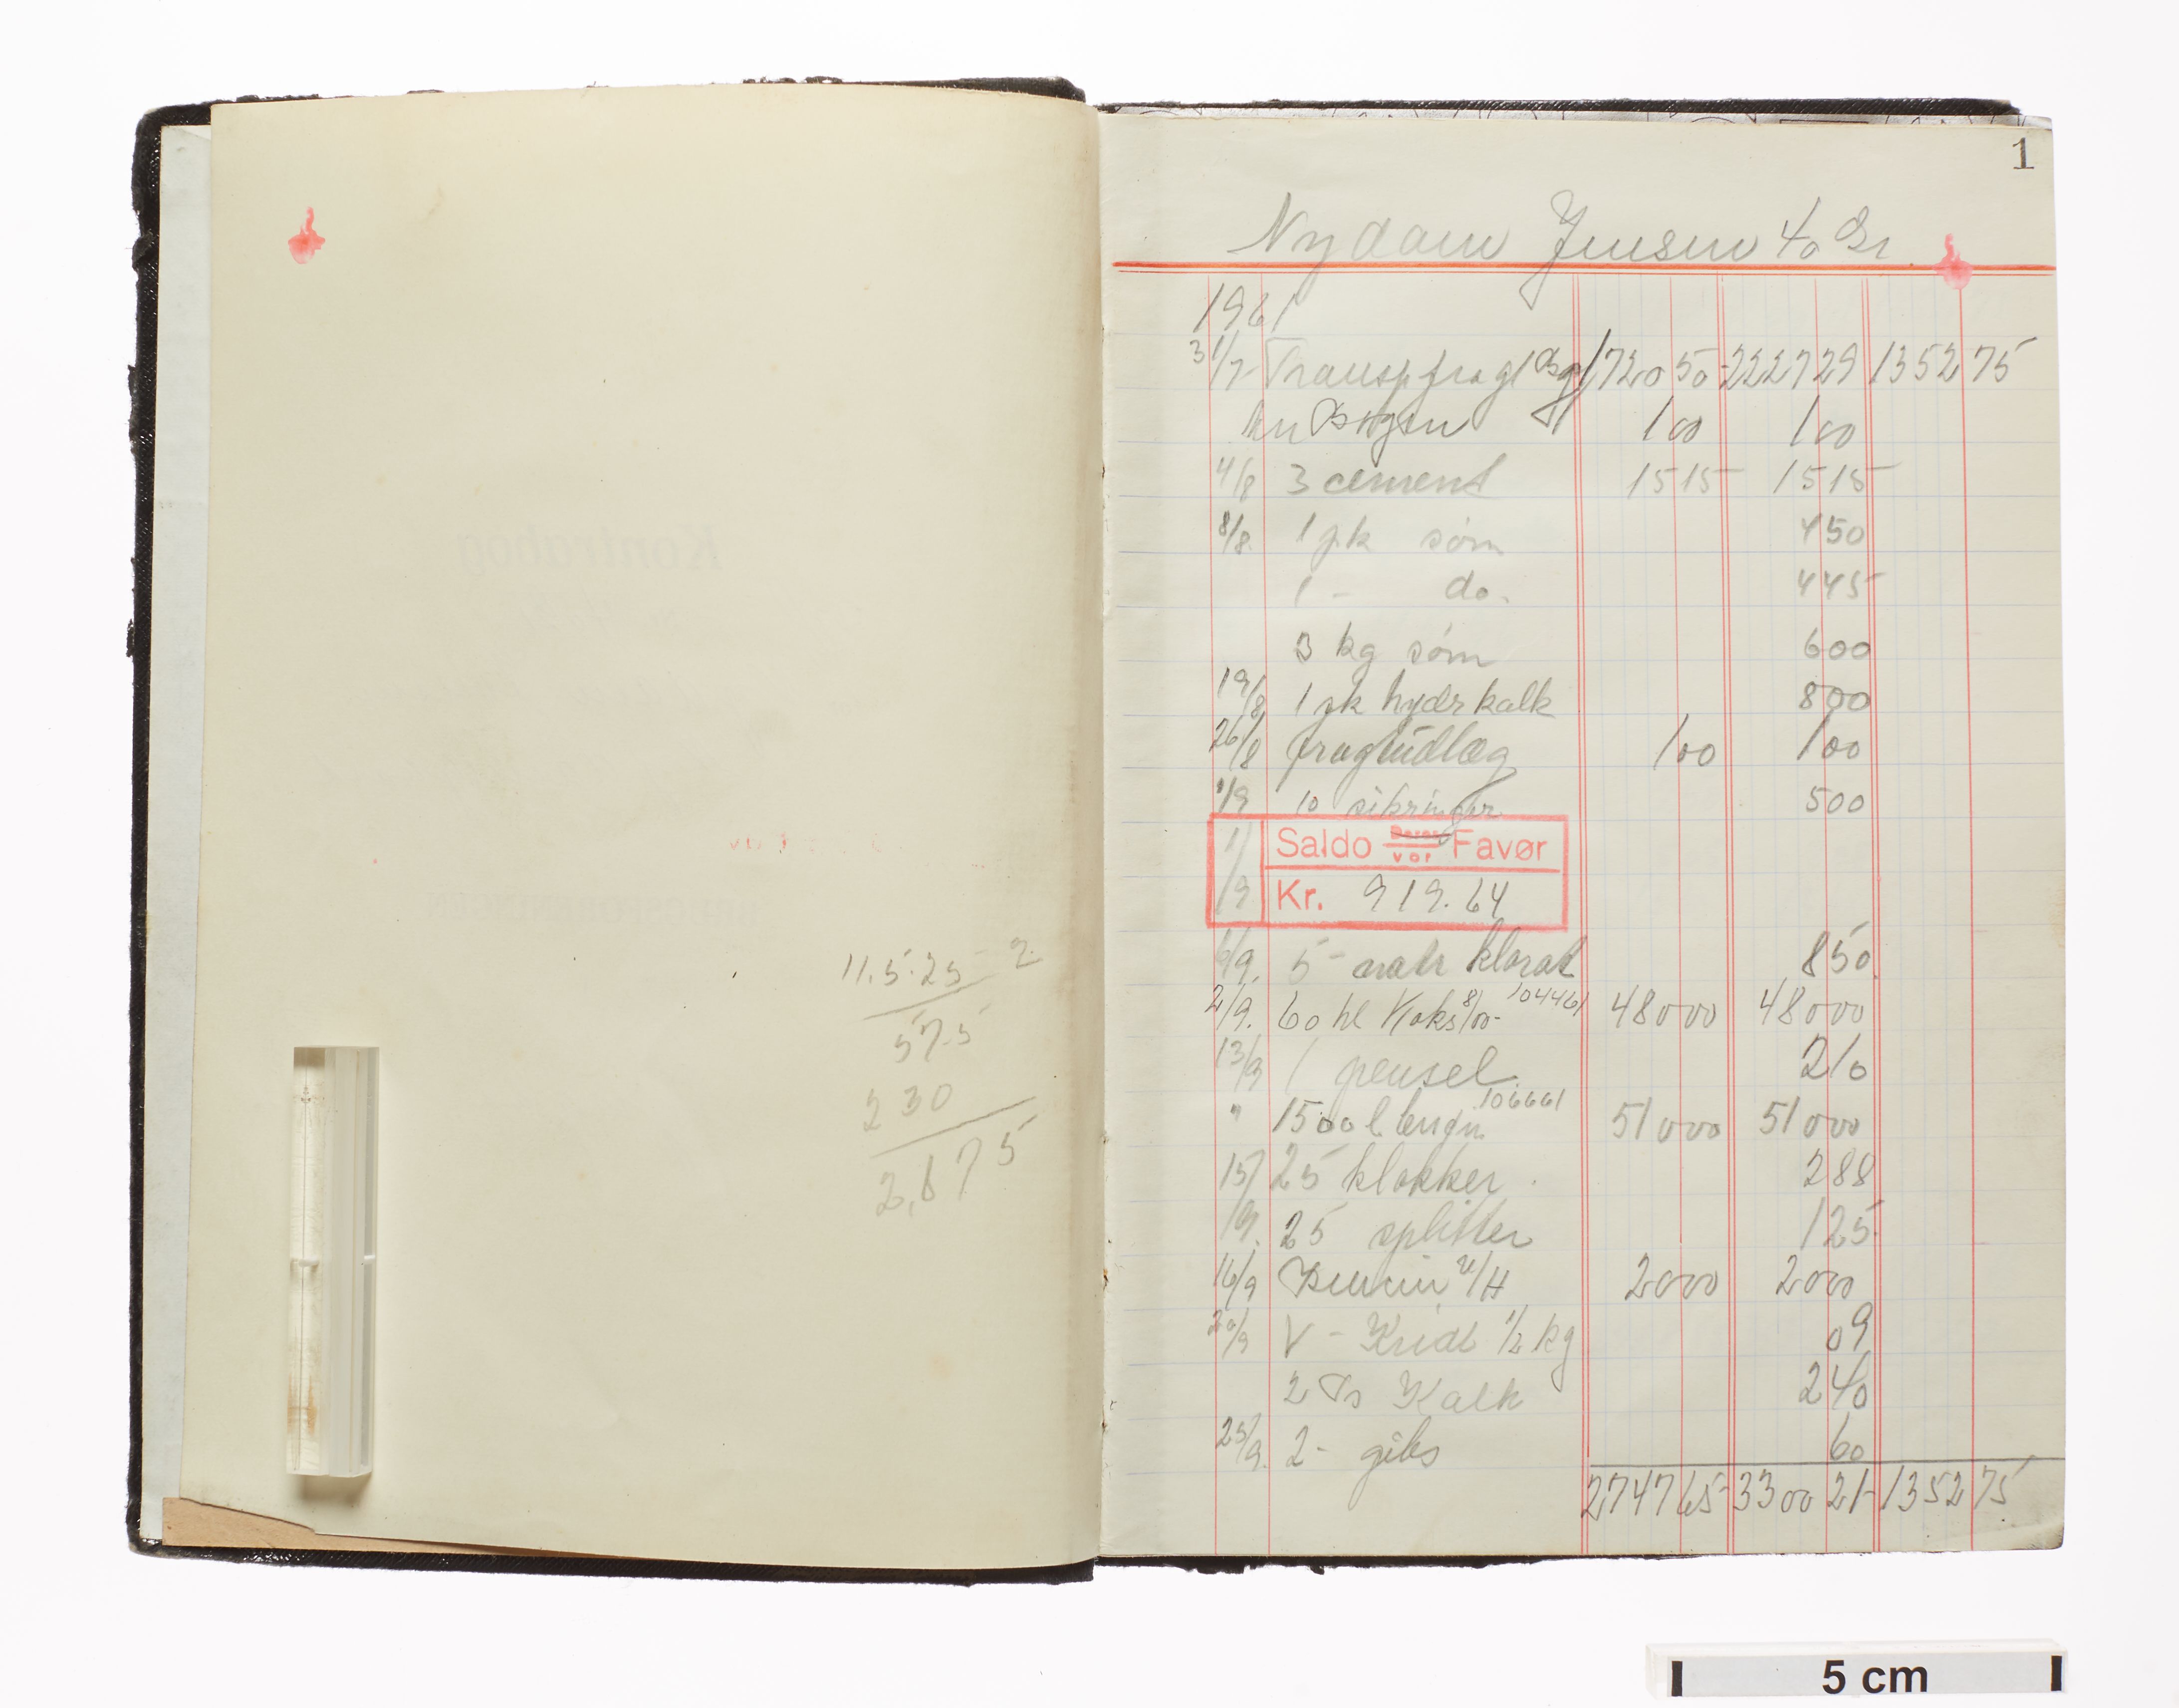 11.5.25 2.
57.5
230
2,875
1
Nydam Jensen 40 Gr.
1961
31/7 Transp fra gl Bg 1720 50 2227 29 1352 75
Bogen 1 00 1 00
4/8 3 cement 15 15 15 15
8/8 1 pk søm 4 50
1 - do. 4 45
3 kg søm 6 00
19/8 1 sk hydr kalk 8 00
26/8 fragtudlæg 1 00 1 00
1/9 10 sikringer 5 00
1/9 Saldo Deres vor Favør
Kr. 919.64
6/9. 5 - natr klorat 8 50
2/9. 60 hl Koks 8/00- 104461 480 00 480 00
13/9 1 pensel 2 10
" 1500 l benzin 106661 510 00 510 00
15/9. 25 klokker 2 88
25 splitter 1 25
16/9 Benzin v/H 20 00 20 00
20/9 V - Kridt 1/2 kg 09
2 Ps Kalk 2 40
25/9. 2 - gibs 60
2747 65 3300 21 1352 75
5 cm